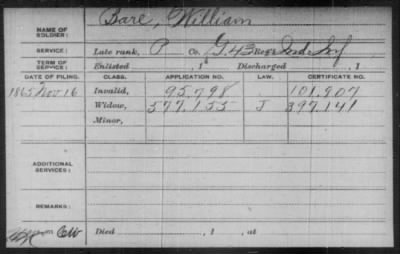 NAME OF SOLDIER: Bare, William
SERVICE: Late rank, P Co. G, 43 Reg't Ind. Inf
TERM OF SERVICE: Enlisted , 1 Discharged , 1
DATE OF FILING. CLASS. APPLICATION NO. LAW. CERTIFICATE NO.
1865 Nov 16 Invalid, 95.798 101.907
Widow, 577.155 J 397.141
Minor,
ADDITIONAL SERVICES:
REMARKS:
CW Died , 1 , at